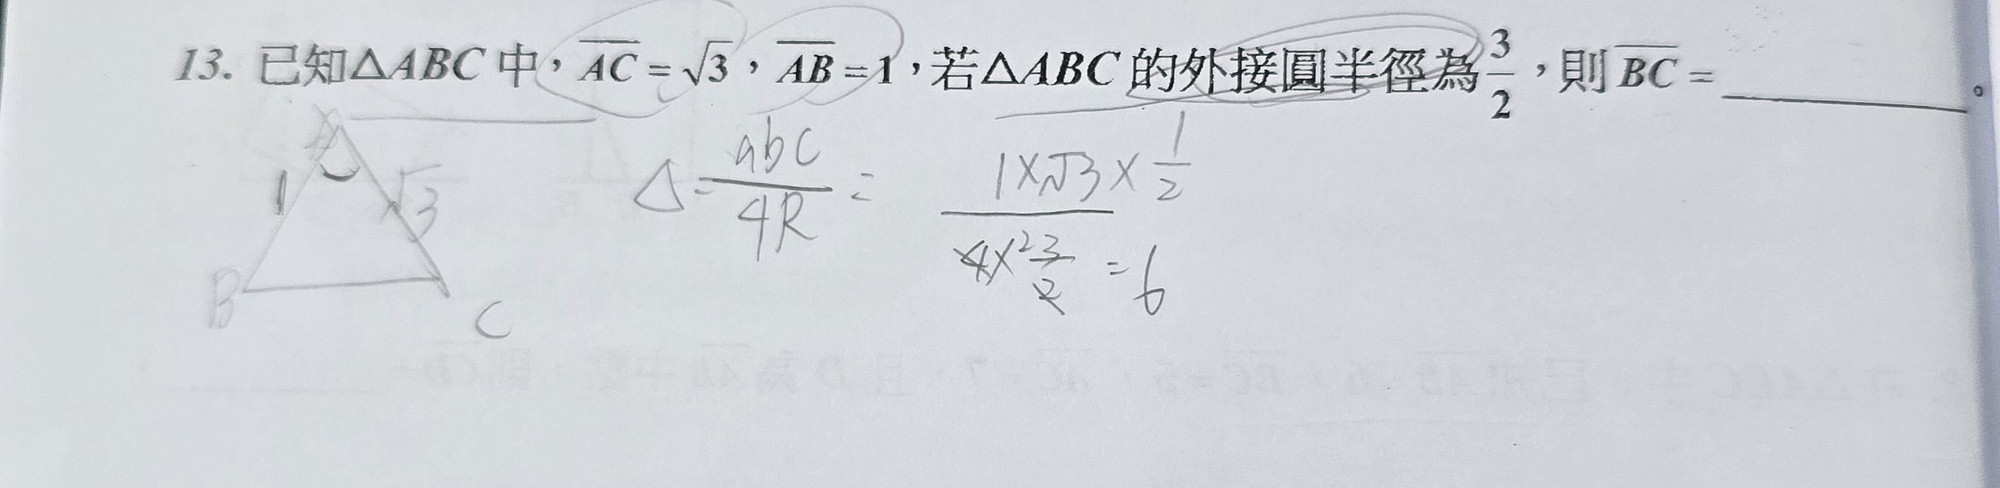 13. 已知△ABC 中，AC = √3，AB = 1，若△ABC 的外接圓半徑為 3/2，則 BC = ________。
A
1 √3
B C
△ = abc/4R =
1×√3×1/2
4×²3/2 = 6